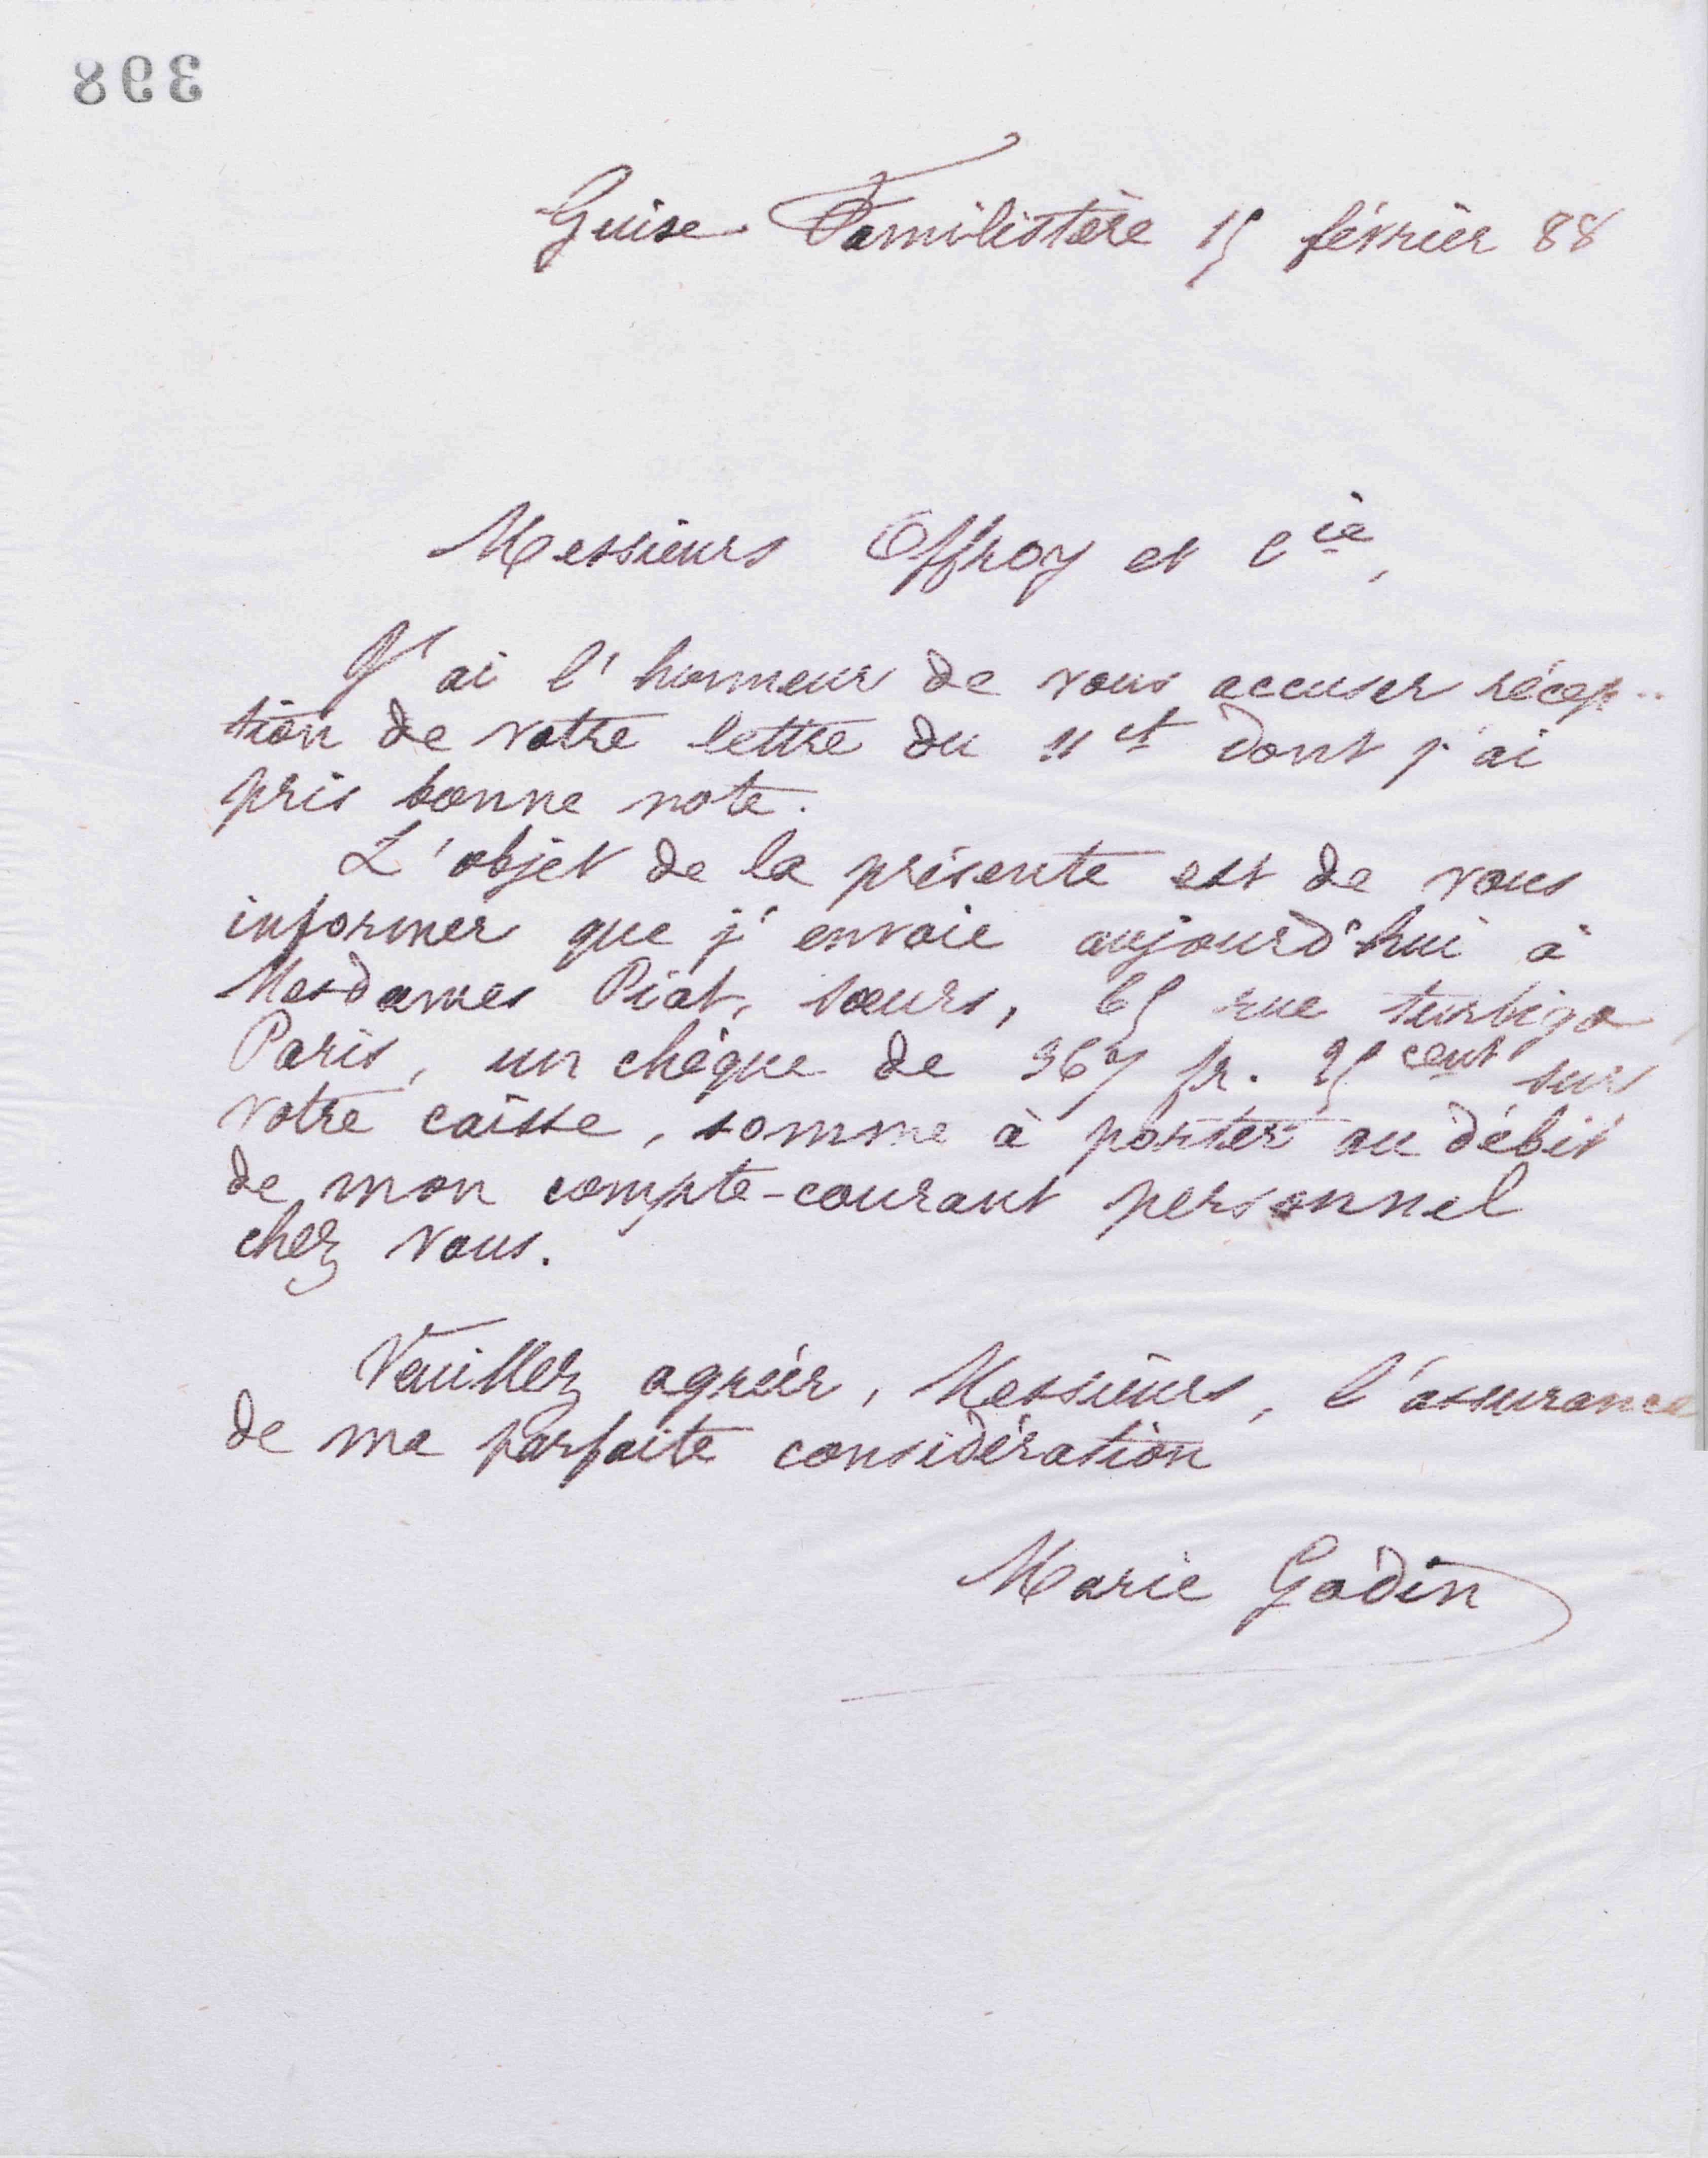 398
Guise Familistère 15 février 88
Messieurs Offroy et Cie,
J'ai l'honneur de vous accuser récep-
tion de votre lettre du 11 ct dont j'ai
pris bonne note.
L'objet de la présente est de vous
informer que j'envoie aujourd'hui à
Mesdames Piat, sœurs, 65 rue turbigo
Paris, un chèque de 367 fr. 25 cent sur
votre caisse, somme à porter au débit
de mon compte-courant personnel
chez vous.
Veuillez agréér, Messieurs, l'assurance
de ma parfaite considération
Marie Godin